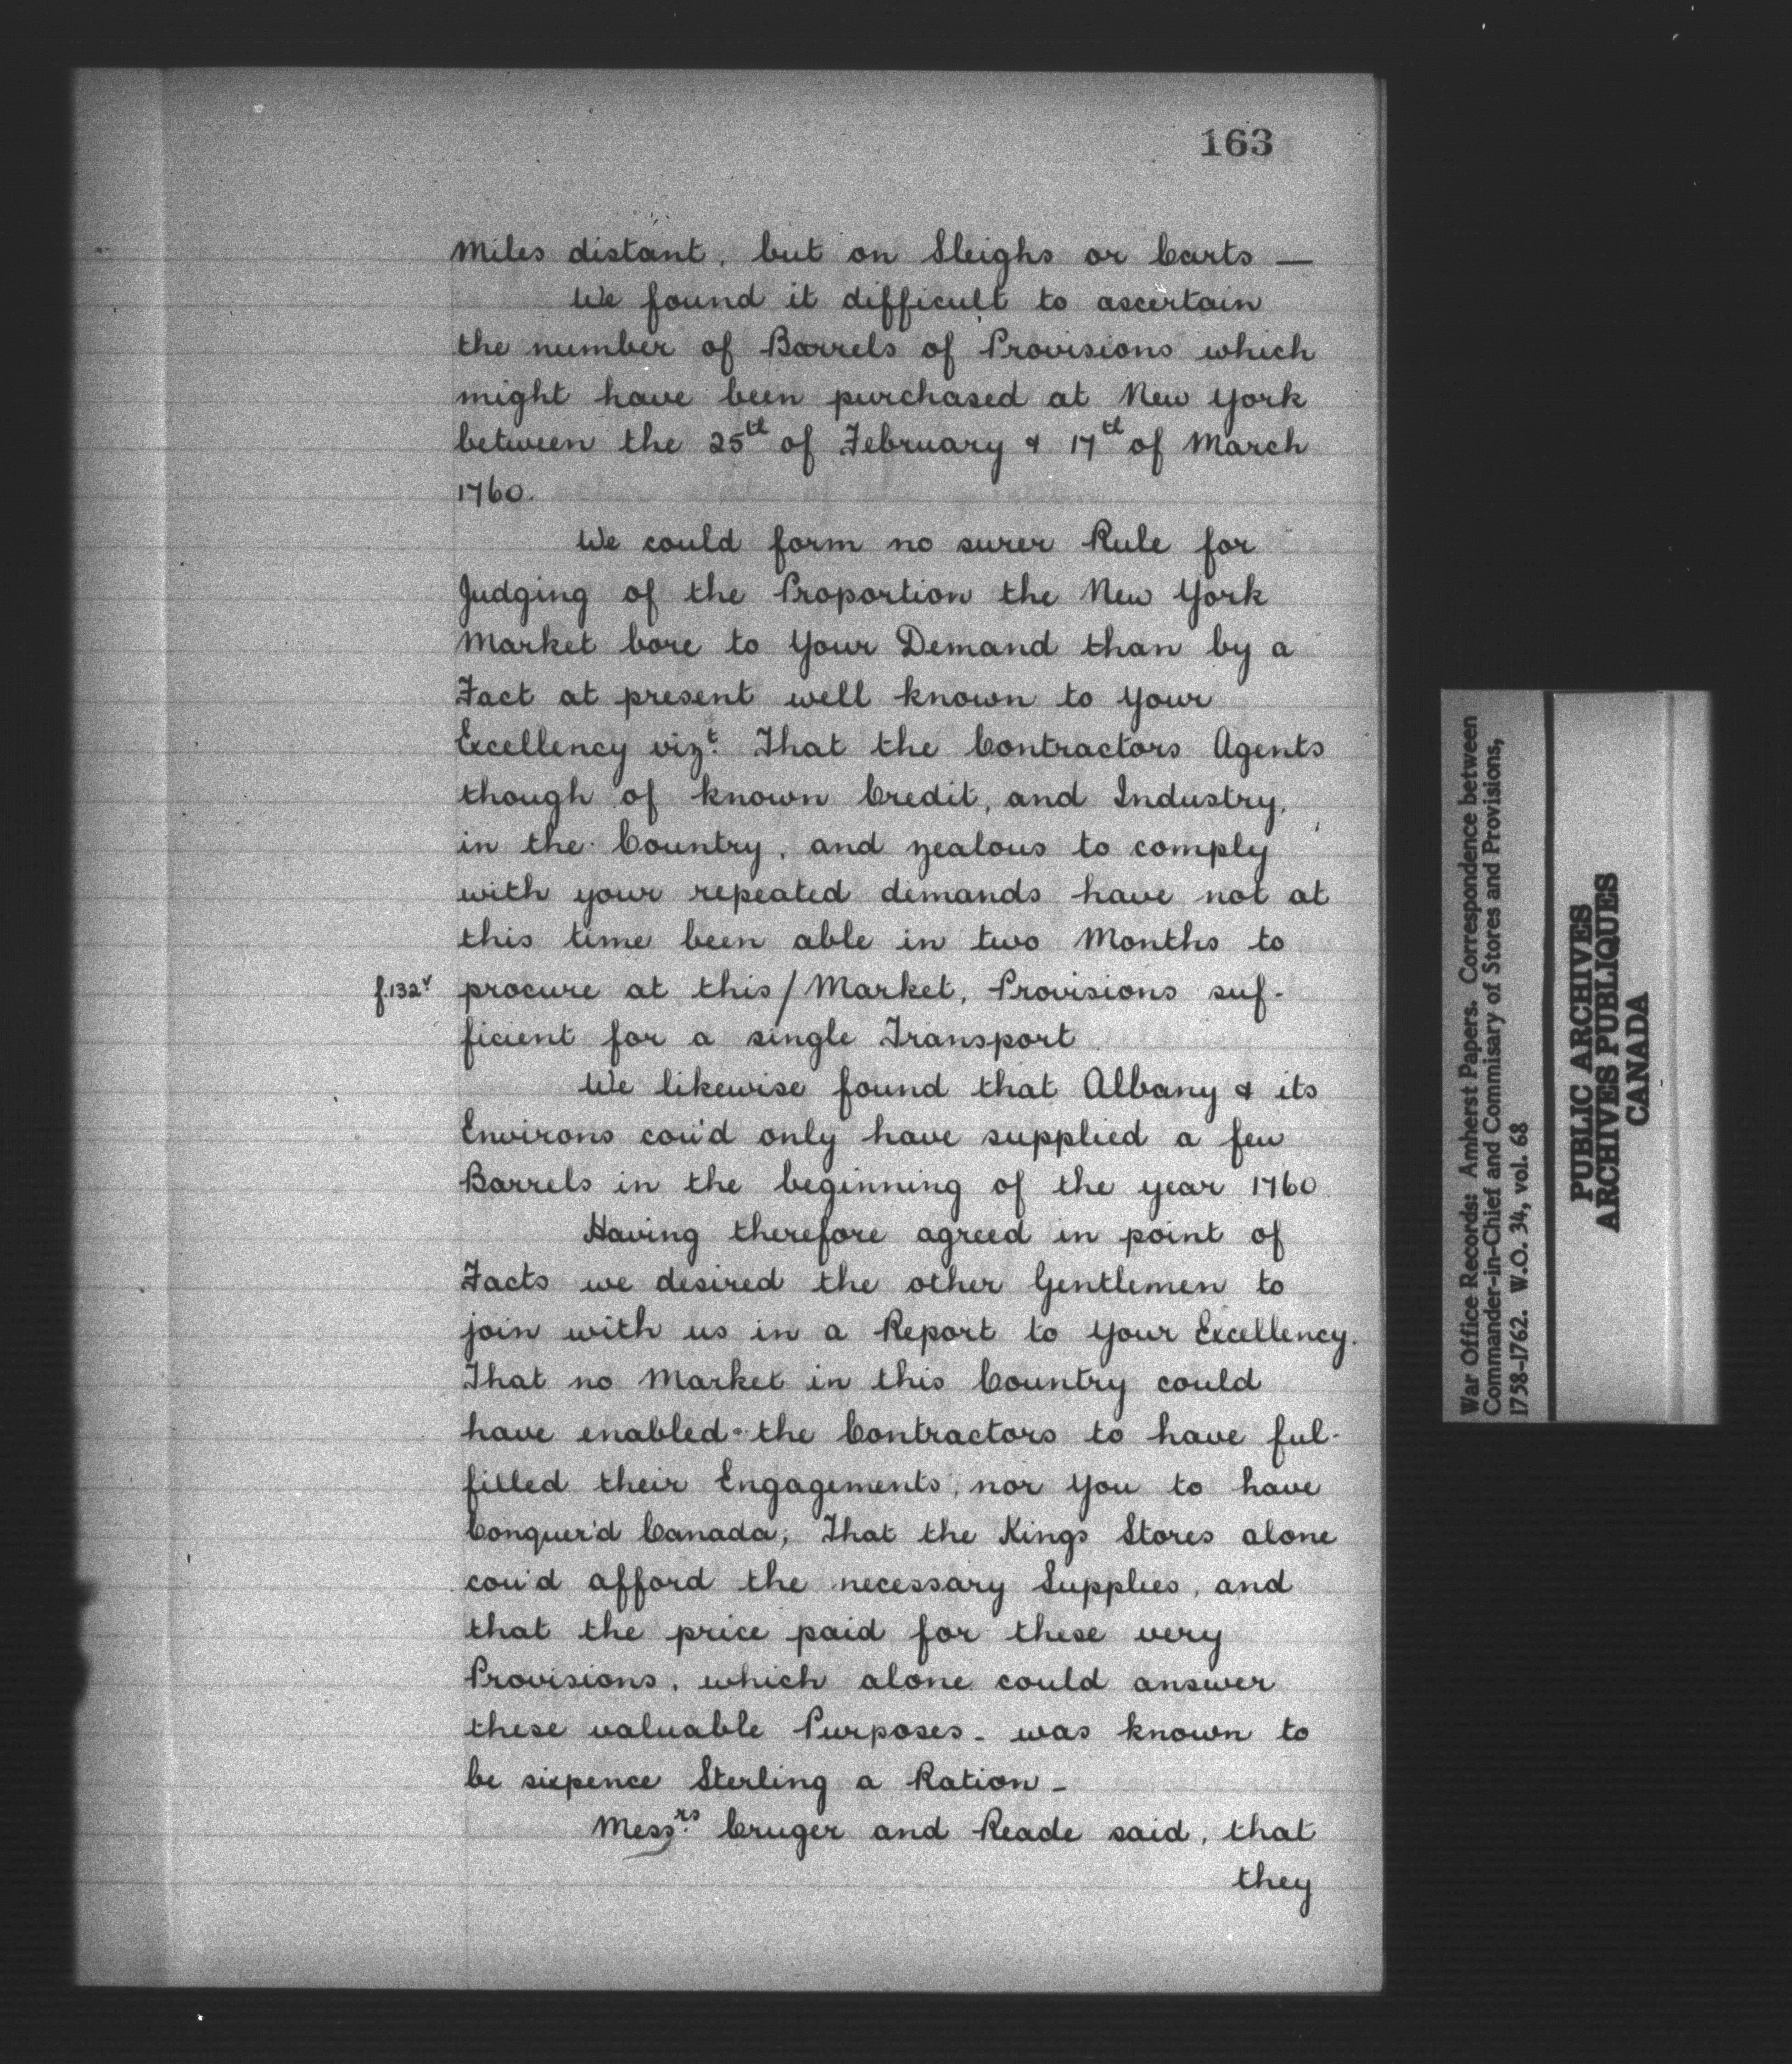 163
Miles distant, but on Sleighs or Carts —
We found it difficult to ascertain
the number of Barrels of Provisions which
might have been purchased at New York
between the 25th of February & 17th of March
1760.
We could form no surer Rule for
Judging of the Proportion the New York
Market bore to Your Demand than by a
Fact at present well known to Your
Excellency vizt. That the Contractors Agents
though of known Credit, and Industry,
in the Country, and zealous to comply
with your repeated demands have not at
this time been able in two Months to
f.132v procure at this/Market, Provisions suf-
ficient for a single Transport
We likewise found that Albany & its
Environs cou'd only have supplied a few
Barrels in the beginning of the year 1760.
Having therefore agreed in point of
Facts we desired the other Gentlemen to
join with us in a Report to Your Excellency.
That no Market in this Country could
have enabled the Contractors to have ful-
filled their Engagements, nor You to have
Conquer'd Canada; That the Kings Stores alone
cou'd afford the necessary Supplies, and
that the price paid for these very
Provisions, which alone could answer
these valuable Purposes - was known to
be sixpence Sterling a Ration -
Messrs. Cruger and Reade said, that
they
War Office Records: Amherst Papers. Correspondence between
Commander-in-Chief and Commisary of Stores and Provisions,
1758-1762. W.O. 34, vol. 68
PUBLIC ARCHIVES
ARCHIVES PUBLIQUES
CANADA